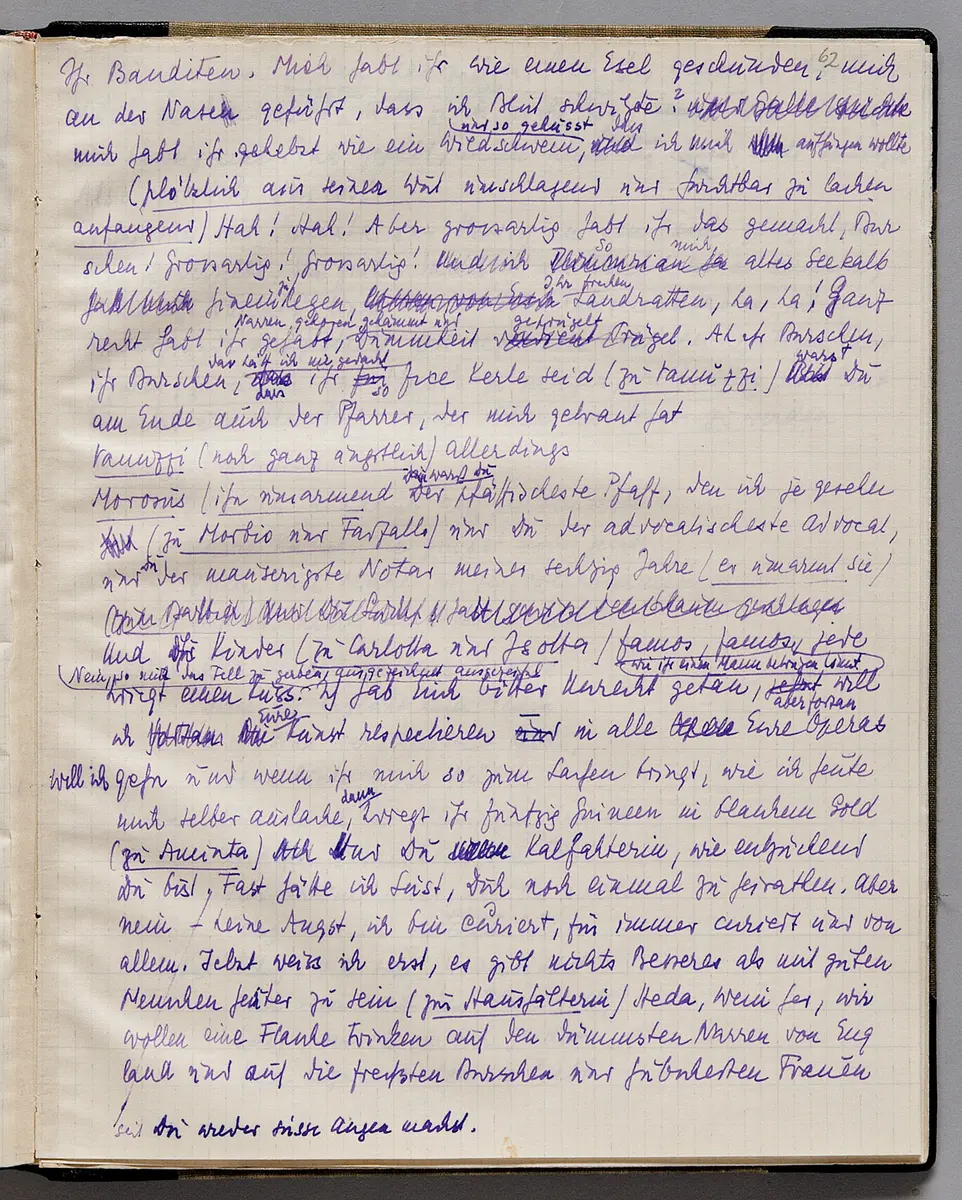 62
Ihr Banditen. Mich habt ihr wie einen Esel geschunden, mich
an der Nasen geführt, dass ich Blut schwitzte?
und so gehusst dass
mich habt ihr gehetzt wie ein Wildschwein, und ich mich aufhängen wollte
(plötzlich aus seiner Wut umschlagend und furchtbar zu lachen
anfangend) Hah! Hah! Aber grossartig habt ihr das gemacht, Bur
schen! Grossartig! Grossartig! Und mich so mich altes Seekalb
hineinzulegen Ihr frechen Landratten, ha, ha! Ganz
Narren gehören gekämmt und geprügelt
recht habt ihr gehabt, Dummheit verdient Prügel. Ah ihr Burschen,
das hätt ich nie gedacht warst
ihr Burschen, dass ihr so fixe Kerle seid (zu Vanuzzi) Du
am Ende auch der Pfarrer, der mich getraut hat
Vanuzzi (noch ganz ängstlich) Allerdings
Morosus (ihn umarmend warst Du Der pfäffischeste Pfaff, den ich je gesehen
(zu Morbio und Farfallo) und Du der advocatischeste Advocat,
und Du der manierigste Notar meiner sechzig Jahre (er umarmt sie)
Und Ihr Kinder (zu Carlotta und Isotta) famos, famos, jede
Nein, so mir das Fell zu gerben, ausgezeichnet ausgezeichnet wie ihr einen Mann betrügen könnt
kriegt einen Kuss. Ich hab Euch bitter Unrecht getan, will
aber fortan
ich Eure Kunst respectieren und in alle Eure Operas
will ich gehn und wenn ihr mich so zum Lachen bringt, wie ich heute
mich selber auslache, dann kriegt ihr fünfzig Guineen in blankem Gold
(zu Aminta) Und Du Kalfakterin, wie entzückend
Du bist, Fast hätte ich Lust, Dich noch einmal zu heirathen. Aber
nein – keine Angst, ich bin curiert, für immer curiert und von
allem. Jetzt weiss ich erst, es gibt nichts Besseres als mit guten
Menschen heiter zu sein (zur Haushälterin) Heda, Wein her, wir
wollen eine Flasche trinken auf den dümmsten Narren von Eng
land und auf die frechsten Burschen und hübschesten Frauen
seit Du wieder süsse Augen machst.